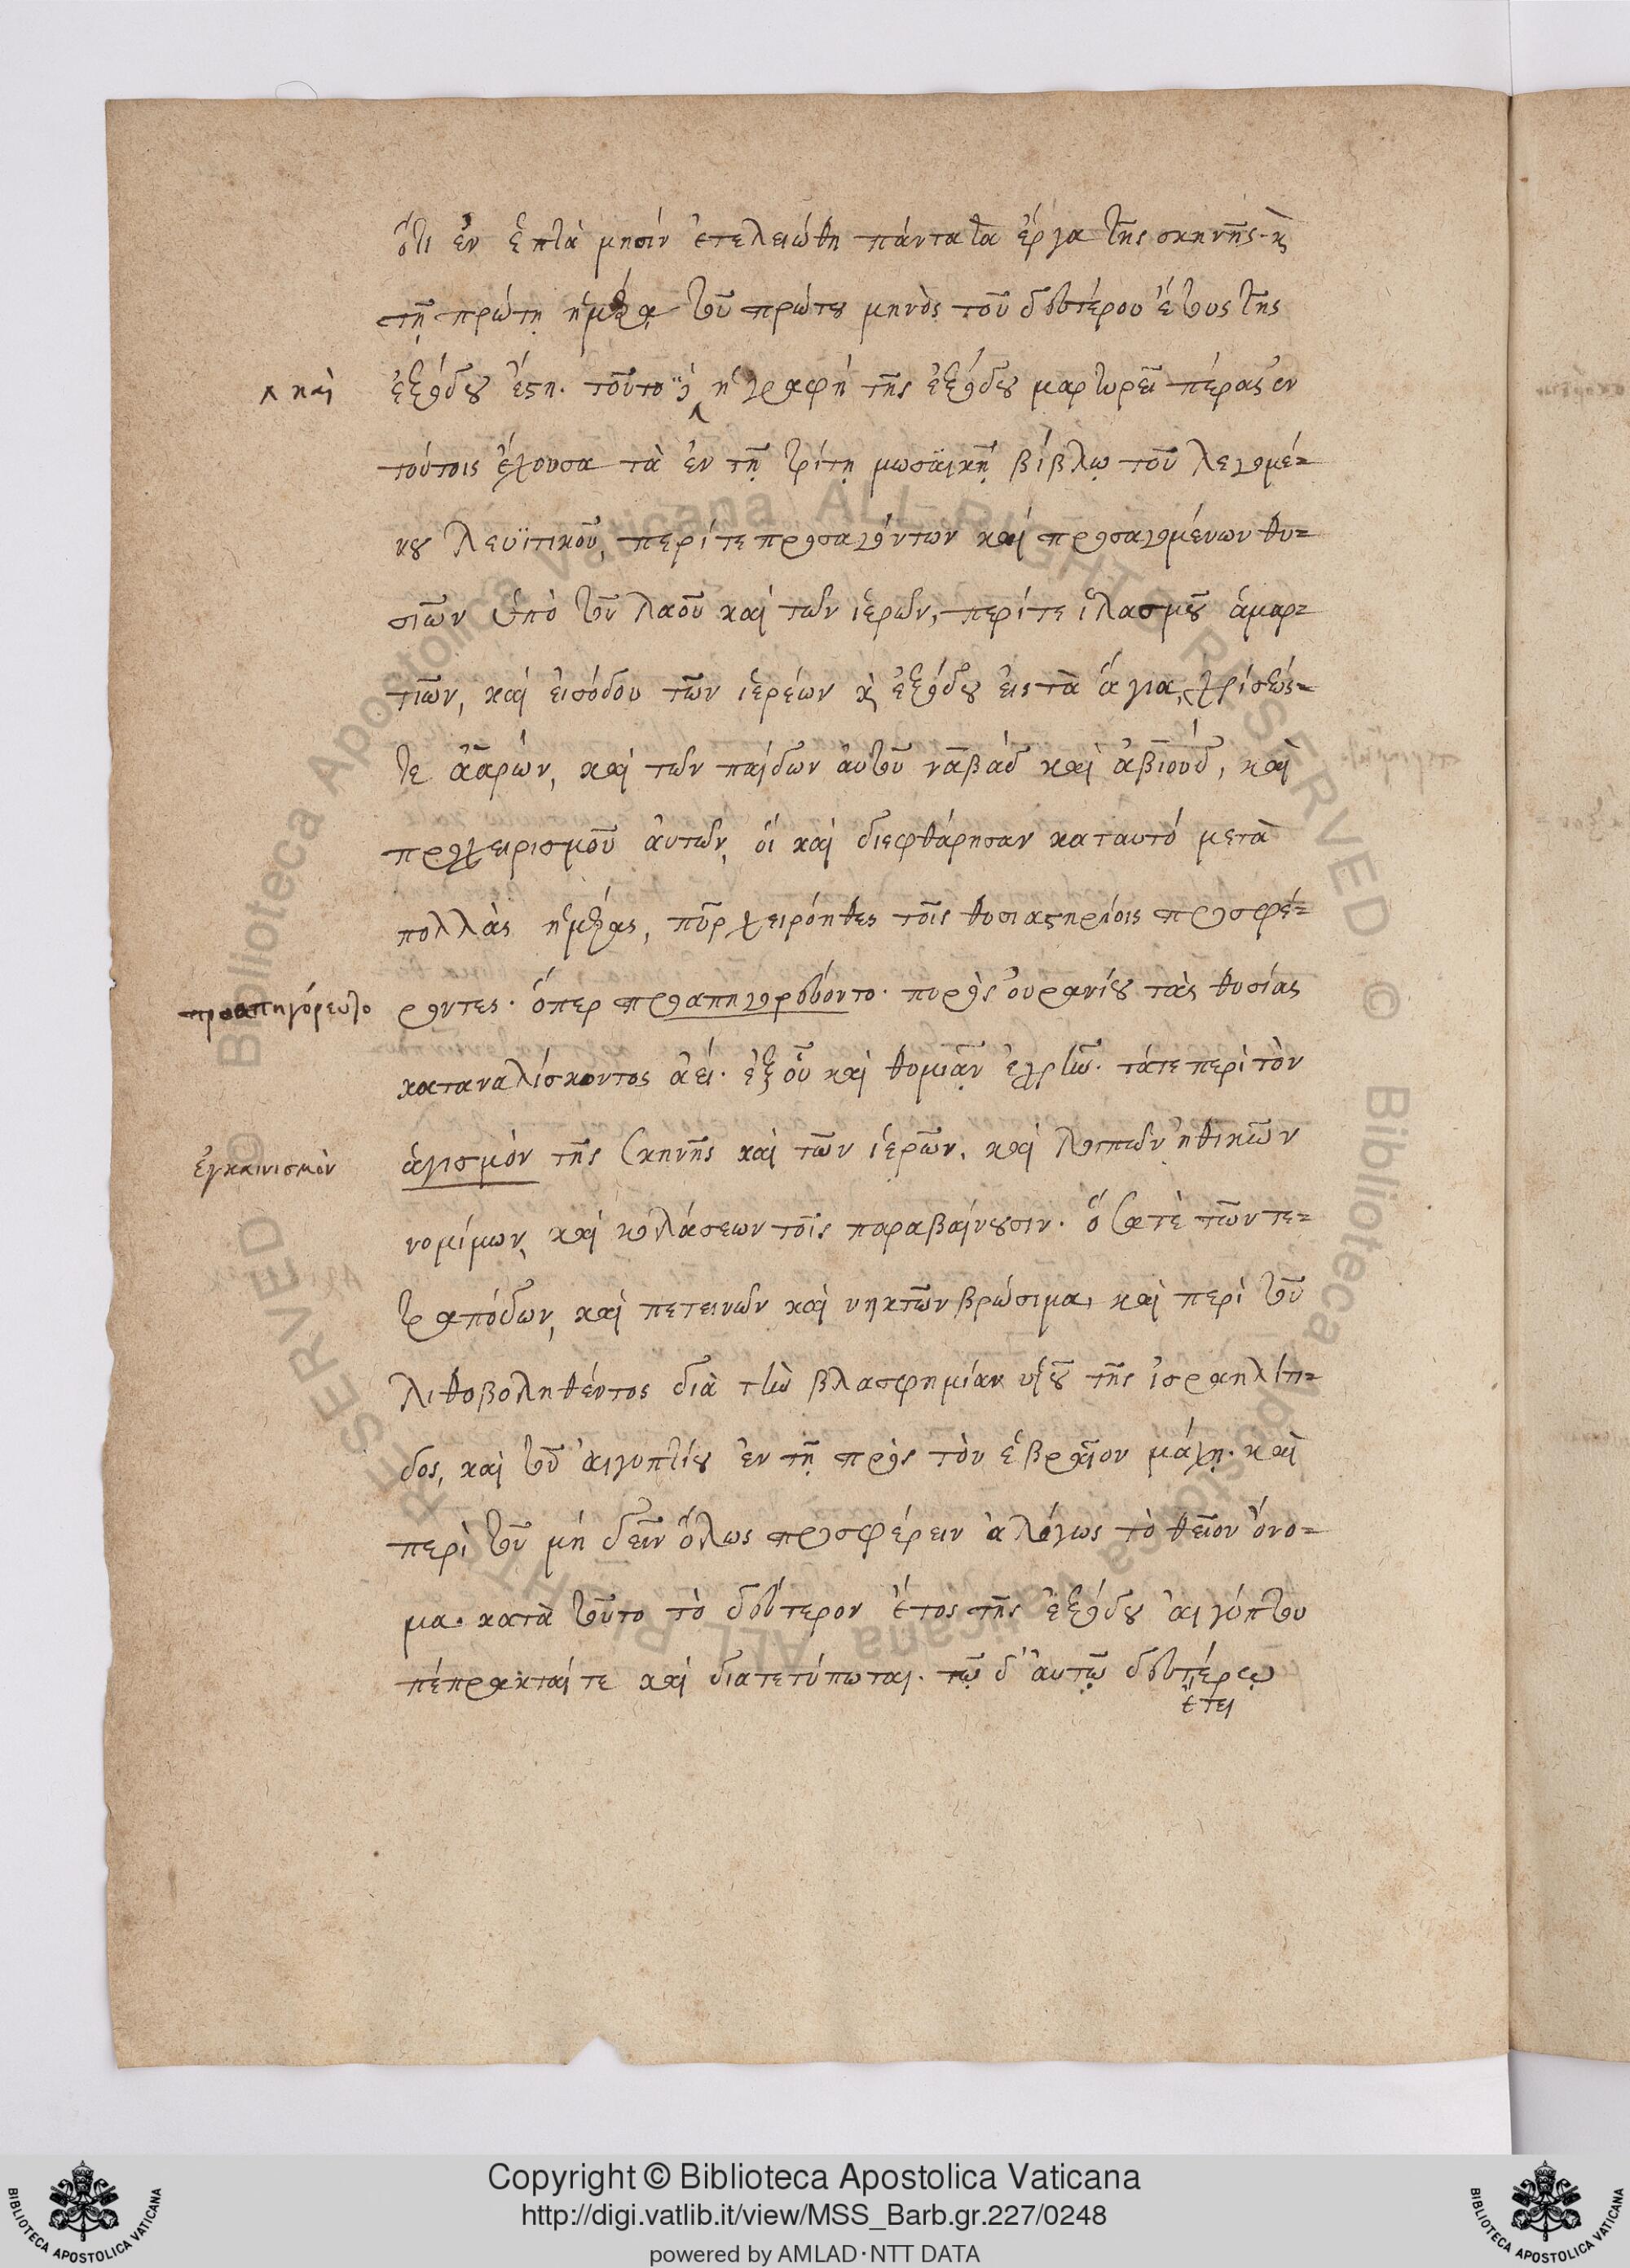 ὅτι ἐν ἑπτὰ μησὶν ἐτελειώθη πάντα τὰ ἔργα τῆς σκηνῆς· κὶ
τῇ πρώτῃ ἡμέρᾳ τοῦ πρώτου μηνὸς τοῦ δευτέρου ἔτους τῆς
^ καὶ
ἐξόδου ἔστη. τοῦτο ^ ἡ γραφὴ τῆς ἐξόδου μαρτυρεῖ πέρας ἐν
τούτοις ἔχουσα τὰ ἐν τῇ τρίτῃ μωσαϊκῇ βίβλῳ τοῦ λεγομέ=
νου Λευϊτικοῦ, περί τε προσαγόντων καὶ προσαγομένων θυ=
σιῶν ὑπὸ τοῦ λαοῦ καὶ τῶν ἱερῶν, περί τε ἱλασμοῦ ἁμαρ=
τιῶν, καὶ εἰσόδου τῶν ἱερέων κὶ ἐξόδου εἰς τὰ ἅγια, χρίσεώς=
τε ἀαρών, καὶ τῶν παίδων αὐτοῦ ναβὰδ καὶ ἀβιούδ, καὶ
προχειρισμοῦ αὐτῶν, οἳ καὶ διεφθάρησαν καταυτό μετὰ
πολλὰς ἡμέρας, πῦρ χειρόηθες τοῖς θυσιαστηρίοις προσφέ=
προαπηγόρευτο
ροντες. ὅπερ προαπηγορεύοντο. πυρὸς οὐρανίου τὰς θυσίας
καταναλίσκοντος ἀεί. ἐξ οὗ καὶ θυμιᾶν ἐχρῆν. τά τε περὶ τὸν
ἐγκαινισμὸν
ἁγισμὸν τῆς σκηνῆς καὶ τῶν ἱερῶν, καὶ λοιπῶν ἠθικῶν
νομίμων, καὶ κολάσεων τοῖς παραβαίνουσιν. ὅσα τὲ τῶν τε=
τραπόδων, καὶ πετεινῶν καὶ νηκτῶν βρώσιμα, καὶ περὶ τοῦ
λιθοβοληθέντος διὰ τὴν βλασφημίαν υἱοῦ τῆς ἰσραηλίτι=
δος, καὶ τοῦ αἰγυπτίου ἐν τῇ πρὸς τὸν ἑβραῖον μάχῃ. καὶ
περὶ τοῦ μὴ δεῖν ὅλως προσφέρειν ἀλόγως τὸ θεῖον ὄνο=
μα. κατὰ τοῦτο τὸ δεύτερον ἔτος τῆς ἐξόδου αἰγύπτου
πέπρακταί τε καὶ διατετύπωται. τῷ δ' αὐτῷ δευτέρῳ
ἔτει
Copyright © Biblioteca Apostolica Vaticana
http://digi.vatlib.it/view/MSS_Barb.gr.227/0248
powered by AMLAD·NTT DATA